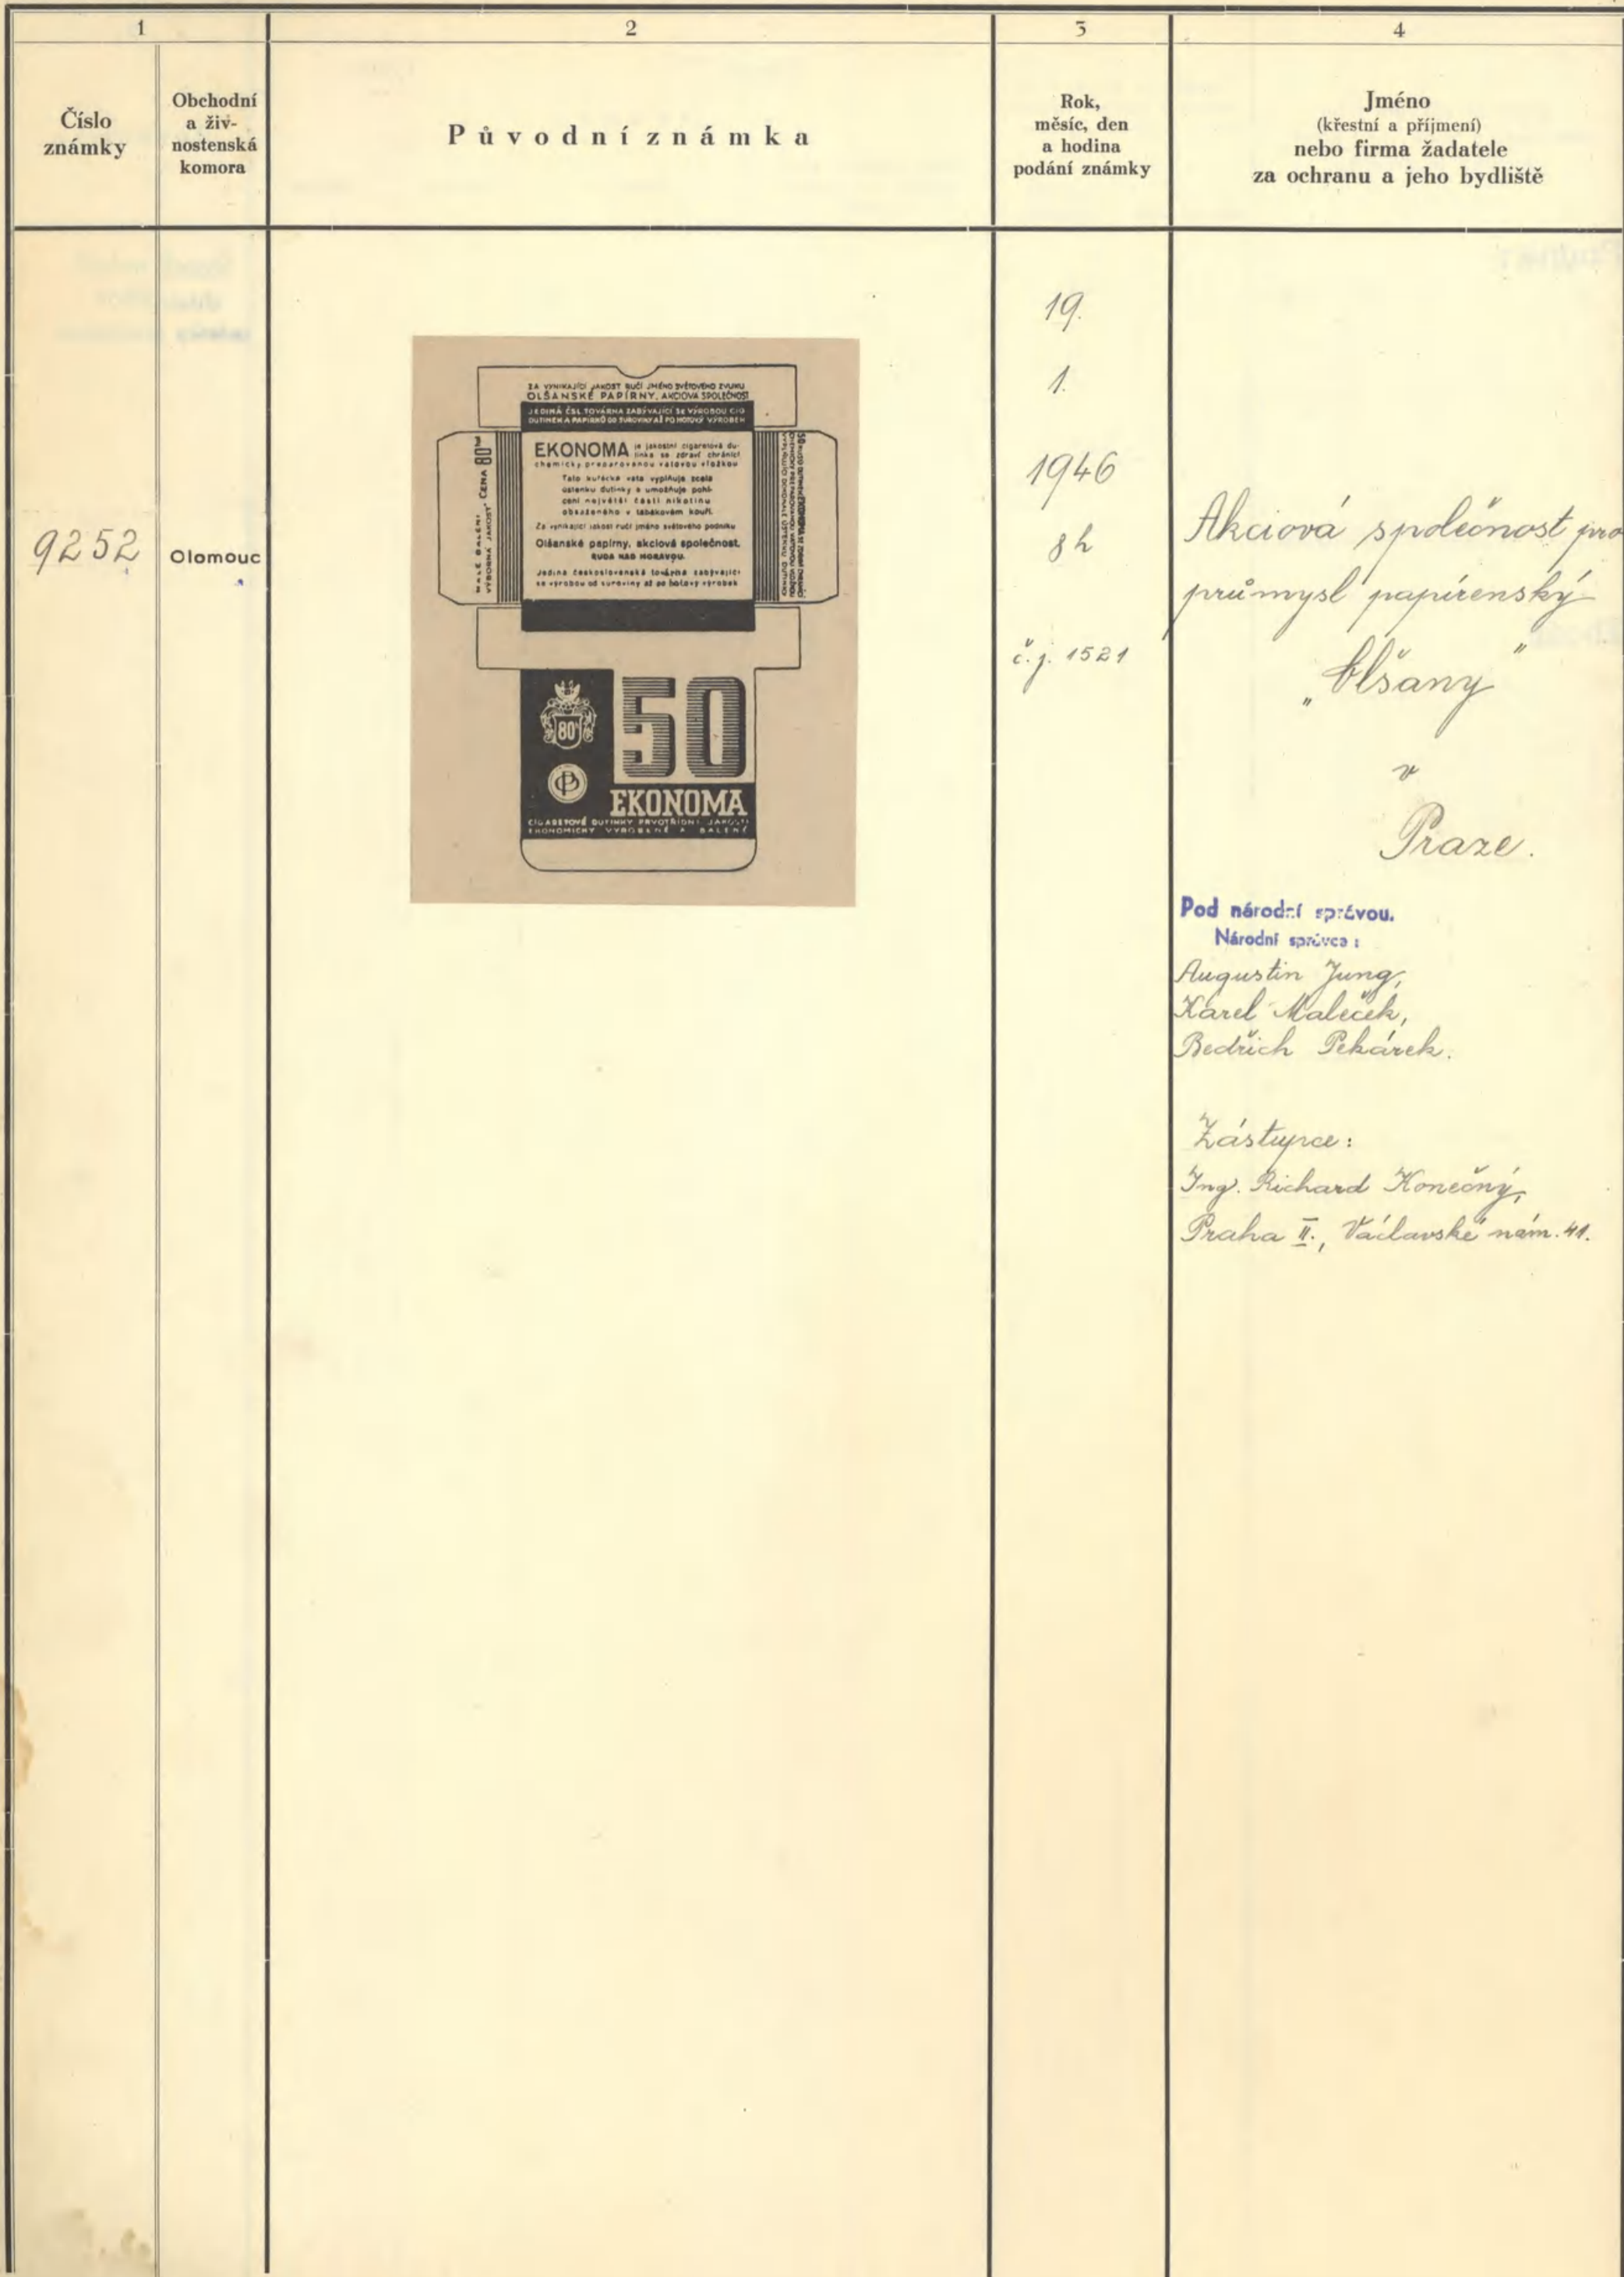 1
2
3
4
Číslo
známky
Obchodní
a živ-
nostenská
komora
Původní známka
Rok,
měsíc, den
a hodina
podání známky
Jméno
(křestní a příjmení)
nebo firma žadatele
za ochranu a jeho bydliště
9252
Olomouc
ZA VYNIKAJÍCÍ JAKOST RUČÍ JMÉNO SVĚTOVÉHO ZVUKU
OLŠANSKÉ PAPÍRNY, AKCIOVÁ SPOLEČNOST
JEDINÁ ČSL. TOVÁRNA ZABÝVAJÍCÍ SE VÝROBOU CIG
DUTINEK A PAPÍRKŮ OD SUROVINY AŽ PO HOTOVÝ VÝROBEK
MALÉ BALENÍ
VÝBORNÁ JAKOST CENA 80
EKONOMA je jakostní cigaretová du-
tinka se zdraví chránící
chemicky preparovanou vatovou vložkou
Tato kuřácká vata vyplňuje zcela
ústenku dutinky a umožňuje pohl-
cení největší části nikotinu
obsaženého v tabákovém kouři.
Za vynikající jakost ručí jméno světového podniku
Olšanské papírny, akciová společnost,
RUDA NAD MORAVOU.
Jediná československá továrna zabývající
se výrobou od suroviny až po hotový výrobek
80
50
EKONOMA
CIGARETOVÉ DUTINKY PRVOTŘÍDNÍ JAKOSTI
EKONOMICKY VYROBENÉ A BALENÉ
19.
1.
1946
8h
č.j. 1521
Akciová společnost pro
průmysl papírenský
„Olšany"
v
Praze.
Pod národní správou.
Národní správce:
Augustin Jung,
Karel Maleček,
Bedřich Pekárek.
Zástupce:
Ing. Richard Konečný,
Praha II., Václavské nám. 41.